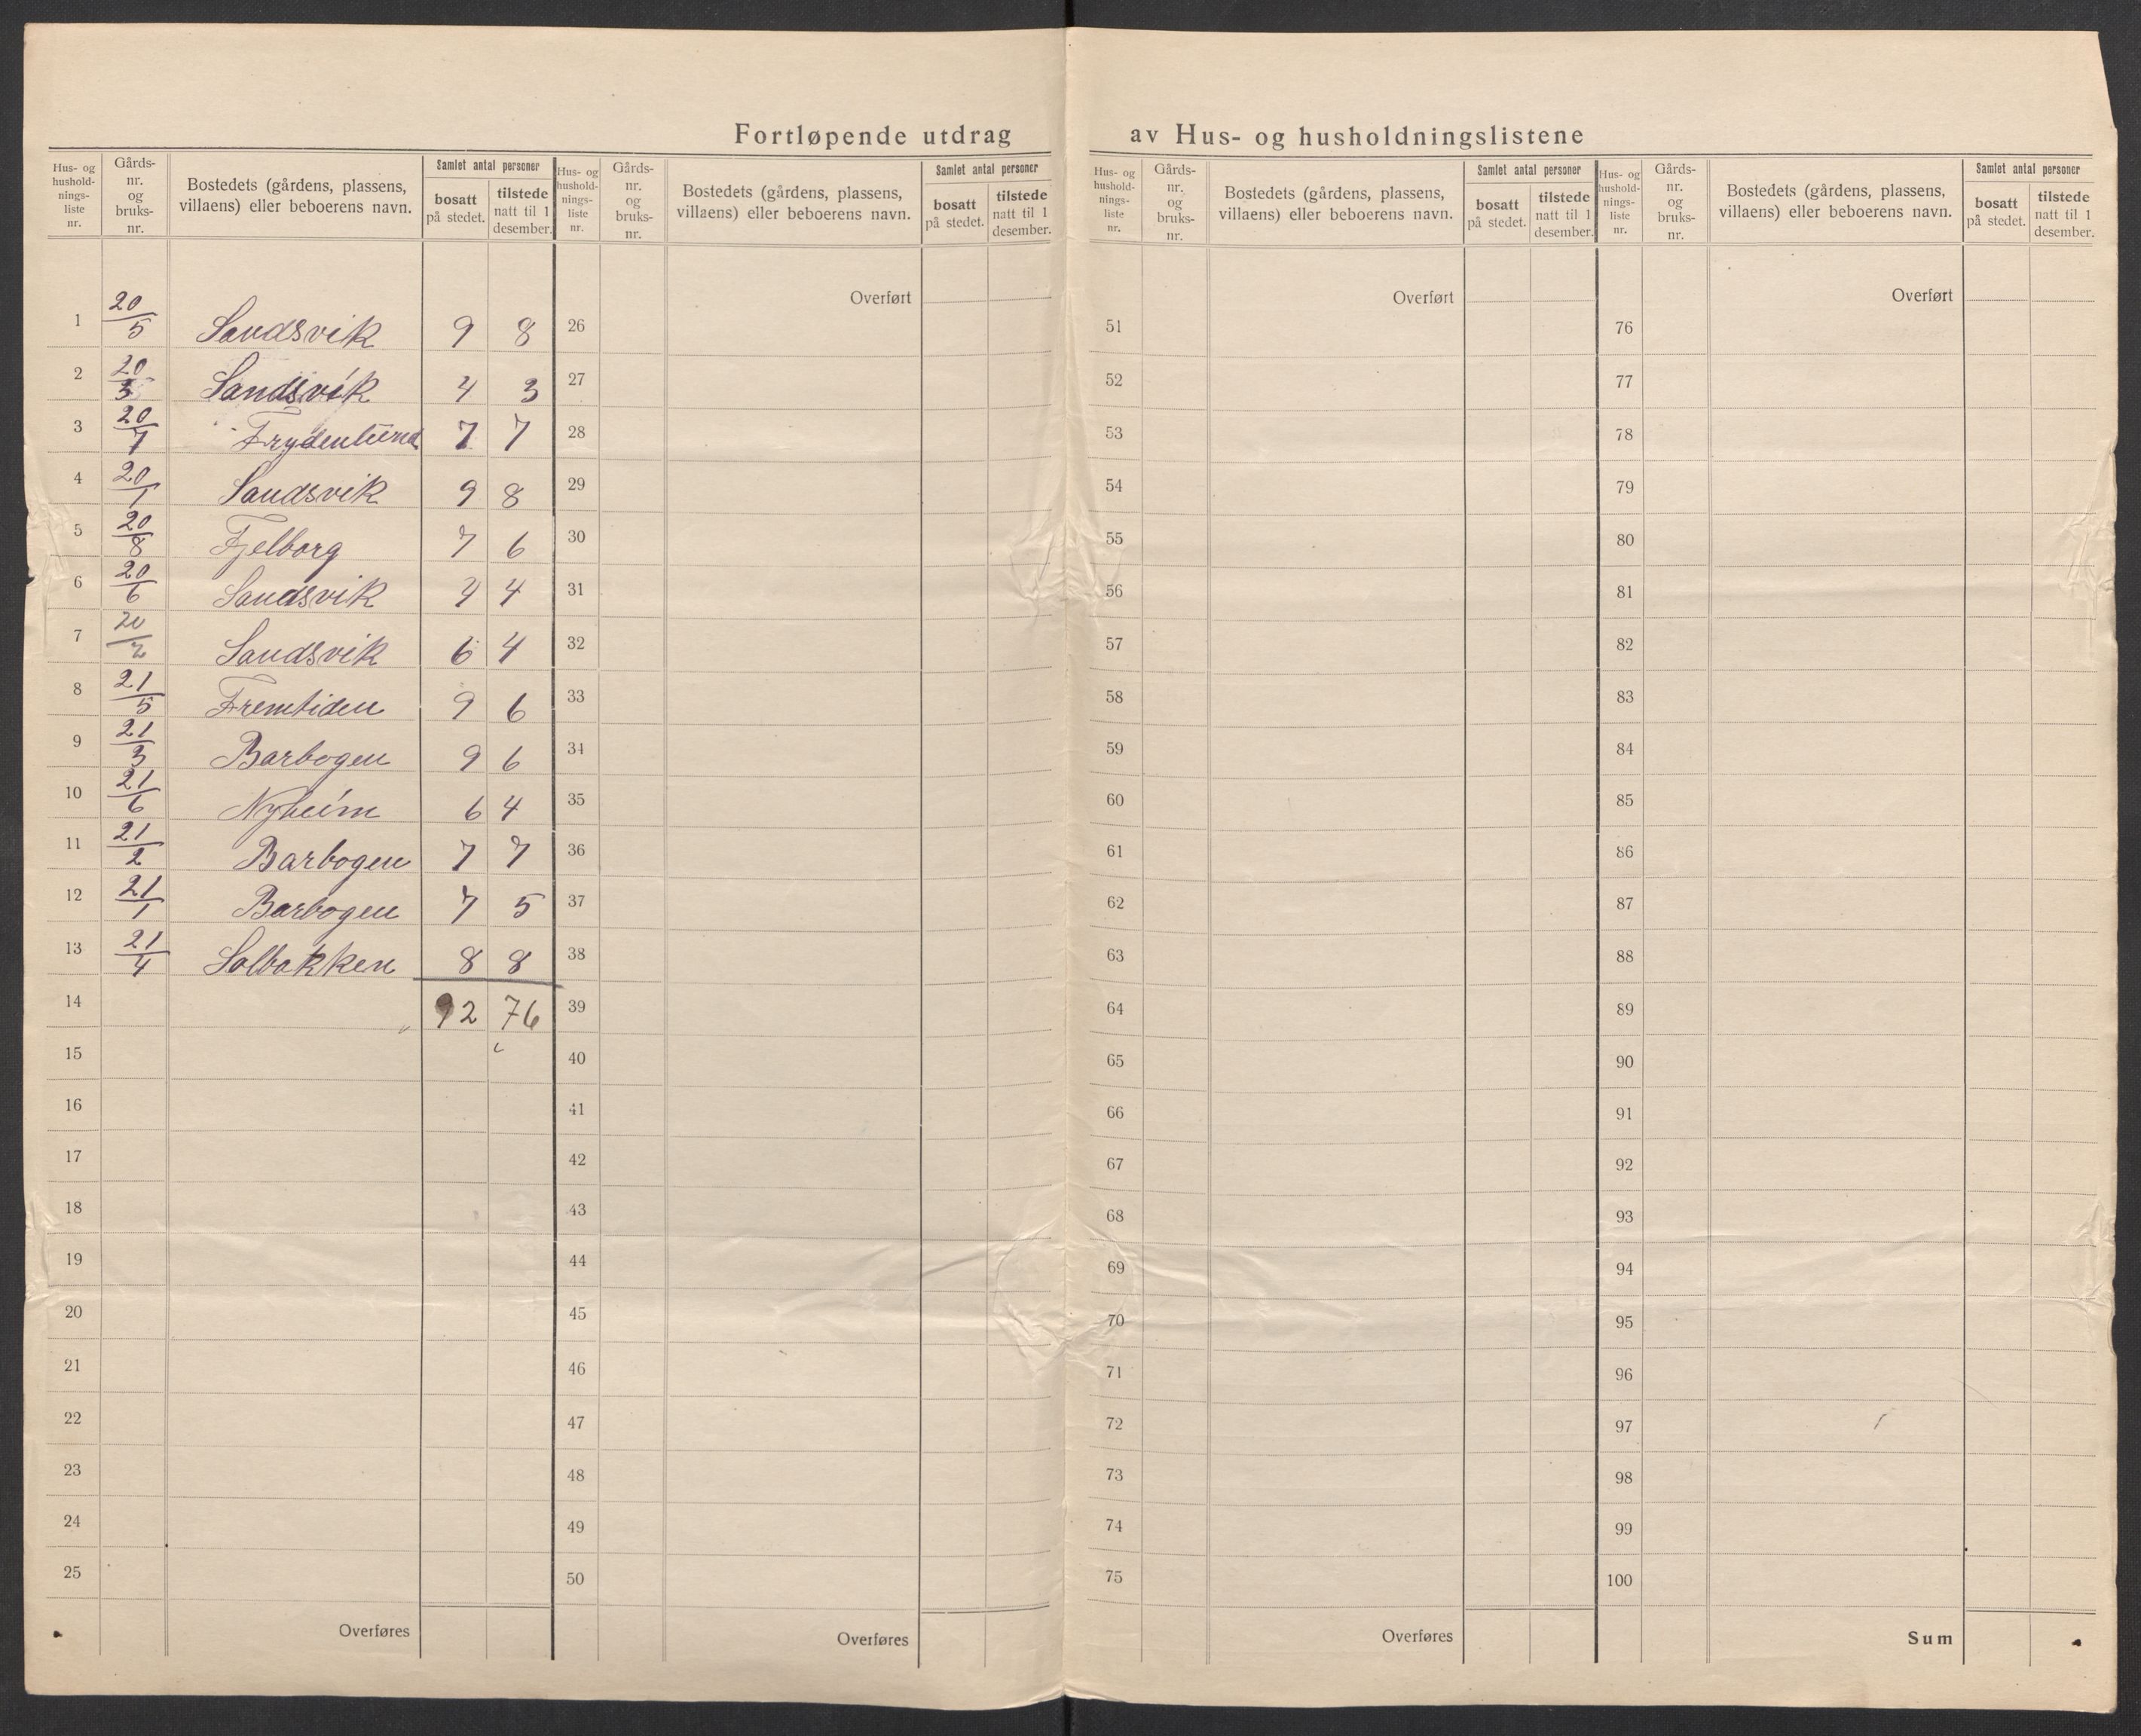 Fortløpende utdrag av Hus- og husholdningslistene
Hus- og hushold- nings- liste nr. | Gårds- nr. og bruks- nr. | Bostedets (gårdens, plassens, villaens) eller beboerens navn. | Samlet antal personer | bosatt på stedet. | tilstede natt til 1 desember.
1 20/5 Sandsvik 9 8
2 20/3 Sandsvik 4 3
3 20/7 Frydenlund 7 7
4 20/1 Sandsvik 9 8
5 20/8 Fjelborg 7 6
6 20/6 Sandsvik 4 4
7 20/2 Sandsvik 6 4
8 21/5 Fremtiden 9 6
9 21/3 Barbogen 9 6
10 21/6 Nyheim 6 4
11 21/2 Barbogen 7 7
12 21/1 Barbogen 7 5
13 21/4 Solbakken 8 8
14 92 76
15
16
17
18
19
20
21
22
23
24
25
Overføres
Hus- og hushold- nings- liste nr. | Gårds- nr. og bruks- nr. | Bostedets (gårdens, plassens, villaens) eller beboerens navn. | Samlet antal personer | bosatt på stedet. | tilstede natt til 1 desember.
Overført
26
27
28
29
30
31
32
33
34
35
36
37
38
39
40
41
42
43
44
45
46
47
48
49
50
Overføres
Hus- og hushold- nings- liste nr. | Gårds- nr. og bruks- nr. | Bostedets (gårdens, plassens, villaens) eller beboerens navn. | Samlet antal personer | bosatt på stedet. | tilstede natt til 1 desember.
Overført
51
52
53
54
55
56
57
58
59
60
61
62
63
64
65
66
67
68
69
70
71
72
73
74
75
Overføres
Hus- og hushold- nings- liste nr. | Gårds- nr. og bruks- nr. | Bostedets (gårdens, plassens, villaens) eller beboerens navn. | Samlet antal personer | bosatt på stedet. | tilstede natt til 1 desember.
Overført
76
77
78
79
80
81
82
83
84
85
86
87
88
89
90
91
92
93
94
95
96
97
98
99
100
Sum